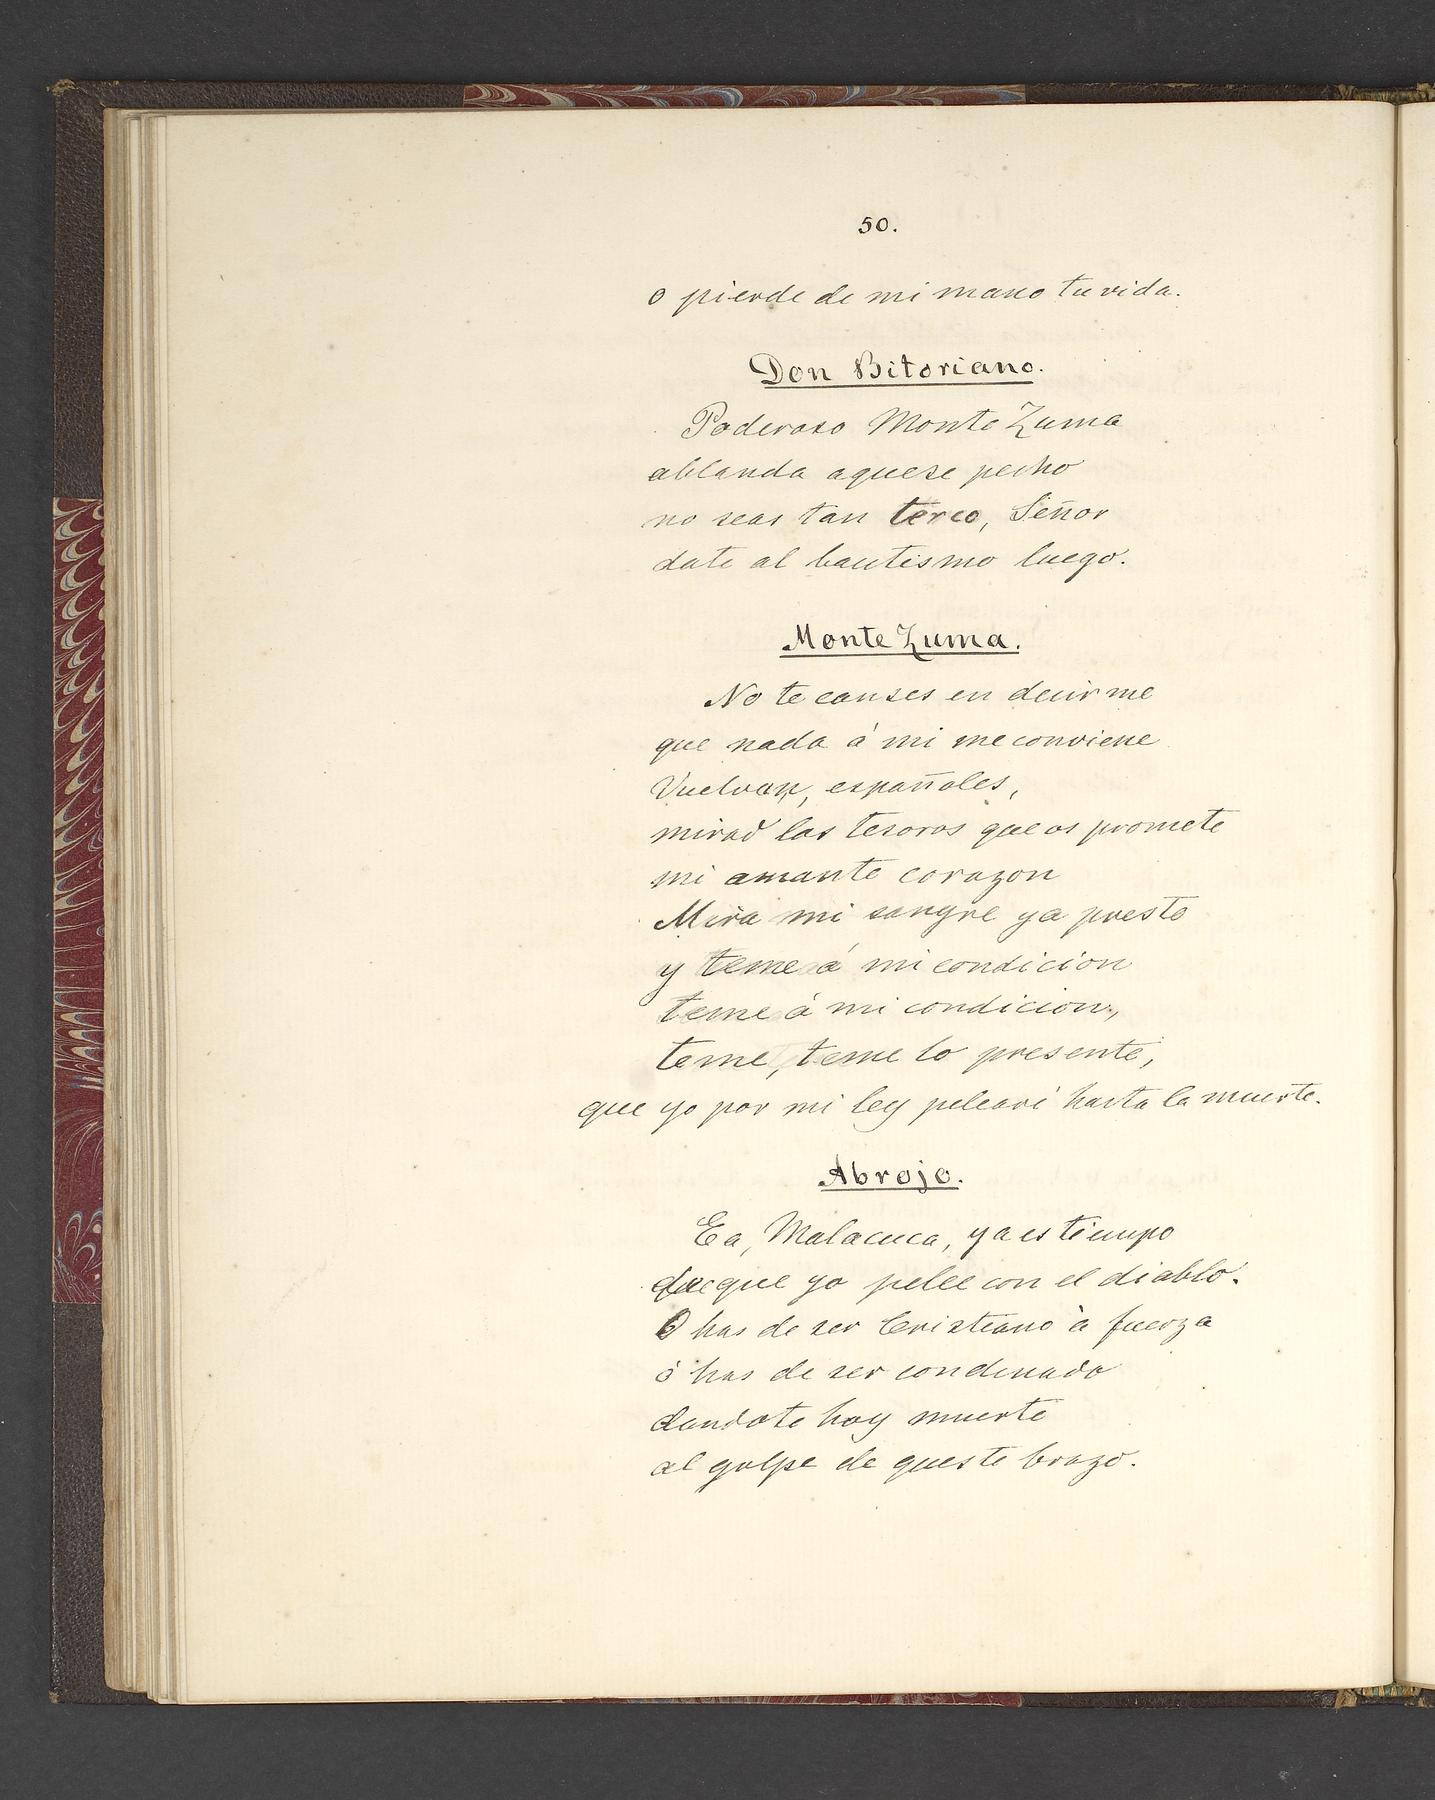 50.
o pierde de mi mano tu vida.
Don Bitoriano.
Poderoso Monte Zuma
ablanda aquese pecho
no seas tan terco, Señor
date al bautismo luego.
Monte Zuma.
No te canses en decirme
que nada á mi me conviene
Vuelvan, españoles,
mirad los tesoros que os promete
mi amante corazon
Mira mi sangre ya presto
y teme á mi condicion
teme á mi condicion,
teme, teme lo presente,
que yo por mi ley peleari hasta la muerte.
Abrojo.
Ea, Malacuca, ya es tiempo
que yo pelee con el diablo.
O has de ser Cristiano à fuerza
ò has de ser condenado
dandote hoy muerte
al golpe de queste brazo.